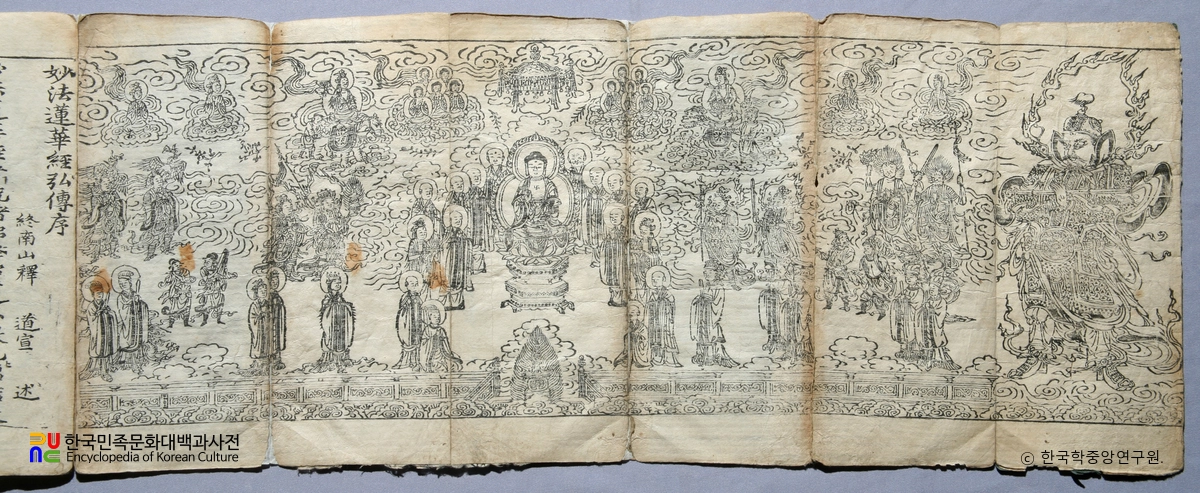 妙法蓮華經弘傳序
終南山釋 道宣 述
한국민족문화대백과사전
Encyclopedia of Korean Culture
ⓒ 한국학중앙연구원.